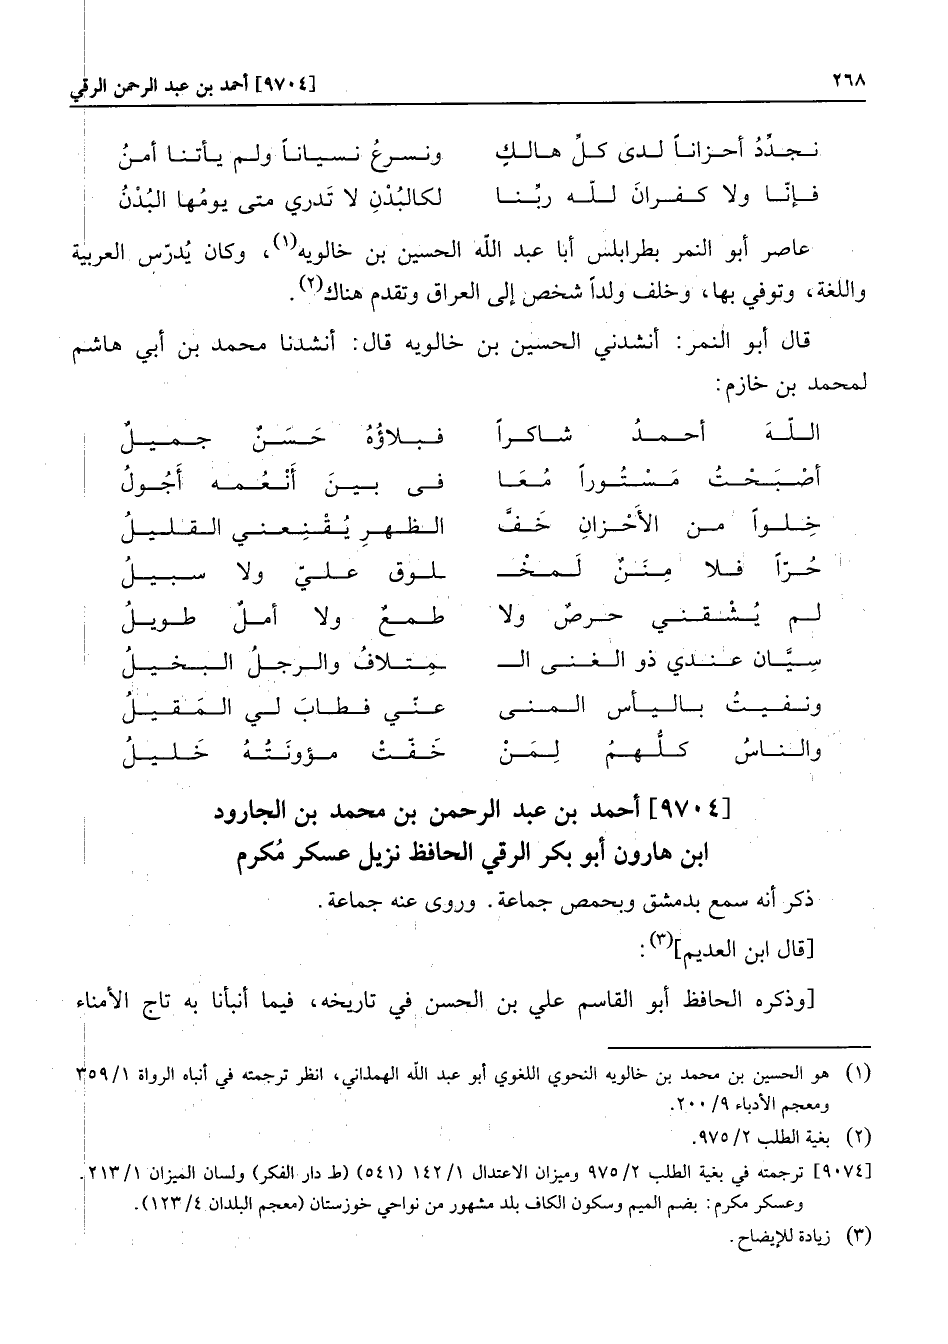 ٢٦٨ [٩٧٠٤] أحمد بن عبد الرحمن الرقي
نجدِّدُ أحزاناً لدى كلِّ هالكِ ونسرعُ نسياناً ولم يأتنا أمنُ
فإنّا ولا كفرانَ للّه ربِّنا لكالبُدْنِ لا تَدري متى يومُها البُدْنُ
عاصر أبو النمر بطرابلس أبا عبد اللّه الحسين بن خالويه(١)، وكان يُدرّس العربية
واللغة، وتوفي بها، وخلف ولداً شخص إلى العراق وتقدم هناك(٢).
قال أبو النمر: أنشدني الحسين بن خالويه قال: أنشدنا محمد بن أبي هاشم
لمحمد بن خازم:
اللّهَ أحمدُ شاكراً فبلاؤُهُ حَسَنٌ جميلُ
أصْبَحْتُ مَسْتُوراً مُعَا فى بينَ أَنْعُمه أَجُولُ
خِلواً من الأَحْزانِ خَفَّ الظهرِ يُقْنِعني القليلُ
حُرّاً فلا مِنَنٌ لمخْـ ـلوق عليّ ولا سبيلُ
لم يُشْقني حرصٌ ولا طمعٌ ولا أملٌ طويلُ
سِيَّان عندي ذو الغنى الـ ـمِتلافُ والرجلُ البخيلُ
ونفيتُ باليأس المنى عنّي فطابَ لي المَقيلُ
والناسُ كلُّهمُ لِمَنْ خَفّتْ مؤونَتُهُ خَليلُ
[٩٧٠٤] أحمد بن عبد الرحمن بن محمد بن الجارود
ابن هارون أبو بكر الرقي الحافظ نزيل عسكر مُكرم
ذكر أنه سمع بدمشق وبحمص جماعة. وروى عنه جماعة.
[قال ابن العديم](٣):
[وذكره الحافظ أبو القاسم علي بن الحسن في تاريخه، فيما أنبأنا به تاج الأمناء
(١) هو الحسين بن محمد بن خالويه النحوي اللغوي أبو عبد اللّه الهمداني، انظر ترجمته في أنباه الرواة ٣٥٩/١
ومعجم الأدباء ٢٠٠/٩.
(٢) بغية الطلب ٩٧٥/٢.
[٩٠٧٤] ترجمته في بغية الطلب ٩٧٥/٢ وميزان الاعتدال ١٤٢/١ (٥٤١) (ط دار الفكر) ولسان الميزان ٢١٣/١.
وعسكر مكرم: بضم الميم وسكون الكاف بلد مشهور من نواحي خوزستان (معجم البلدان ١٢٣/٤).
(٣) زيادة للإيضاح.